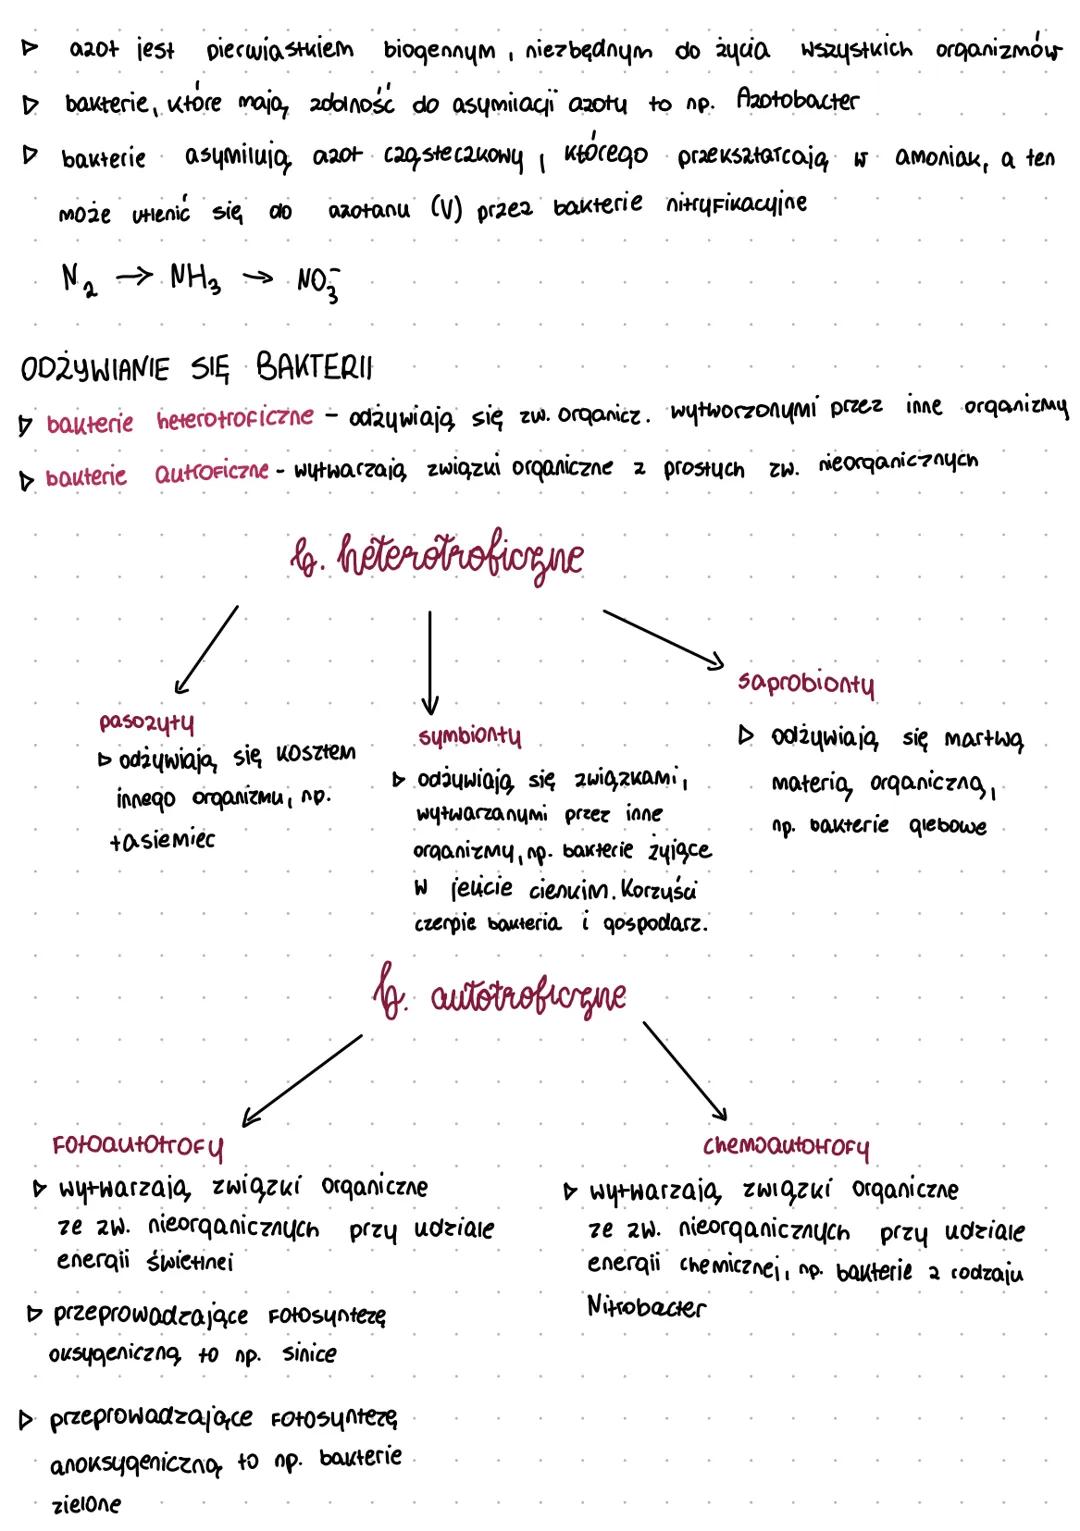 ▷ azot jest pierwiastkiem biogennym, niezbędnym do życia wszystkich organizmów
▷ bakterie, które mają zdolność do asymilacji azotu to np. Azotobacter
▷ bakterie asymilują azot cząsteczkowy, którego przekształcają w amoniak, a ten
może utlenić się do azotanu (V) przez bakterie nitryfikacyjne
N₂ → NH₃ → NO₃⁻
ODŻYWIANIE SIĘ BAKTERII
▷ bakterie heterotroficzne - odżywiają się zw. organicz. wytworzonymi przez inne organizmy
▷ bakterie autroficzne - wytwarzają związki organiczne z prostych zw. nieorganicznych
b. heterotroficzne
pasożyty
▷ odżywiają się kosztem
innego organizmu, np.
tasiemiec
symbionty
▷ odżywiają się związkami,
wytwarzanymi przez inne
organizmy, np. bakterie żyjące
w jelicie cienkim. Korzyści
czerpie bakteria i gospodarz.
saprobionty
▷ odżywiają się martwą
materią organiczną,
np. bakterie glebowe
b. autotroficzne
fotoautotrofy
▷ wytwarzają związki organiczne
ze zw. nieorganicznych przy udziale
energii świetlnej
▷ przeprowadzające fotosyntezę
oksygeniczną to np. sinice
▷ przeprowadzające fotosyntezę
anoksygeniczną to np. bakterie
zielone
chemoautotrofy
▷ wytwarzają związki organiczne
ze zw. nieorganicznych przy udziale
energii chemicznej, np. bakterie z rodzaju
Nitrobacter